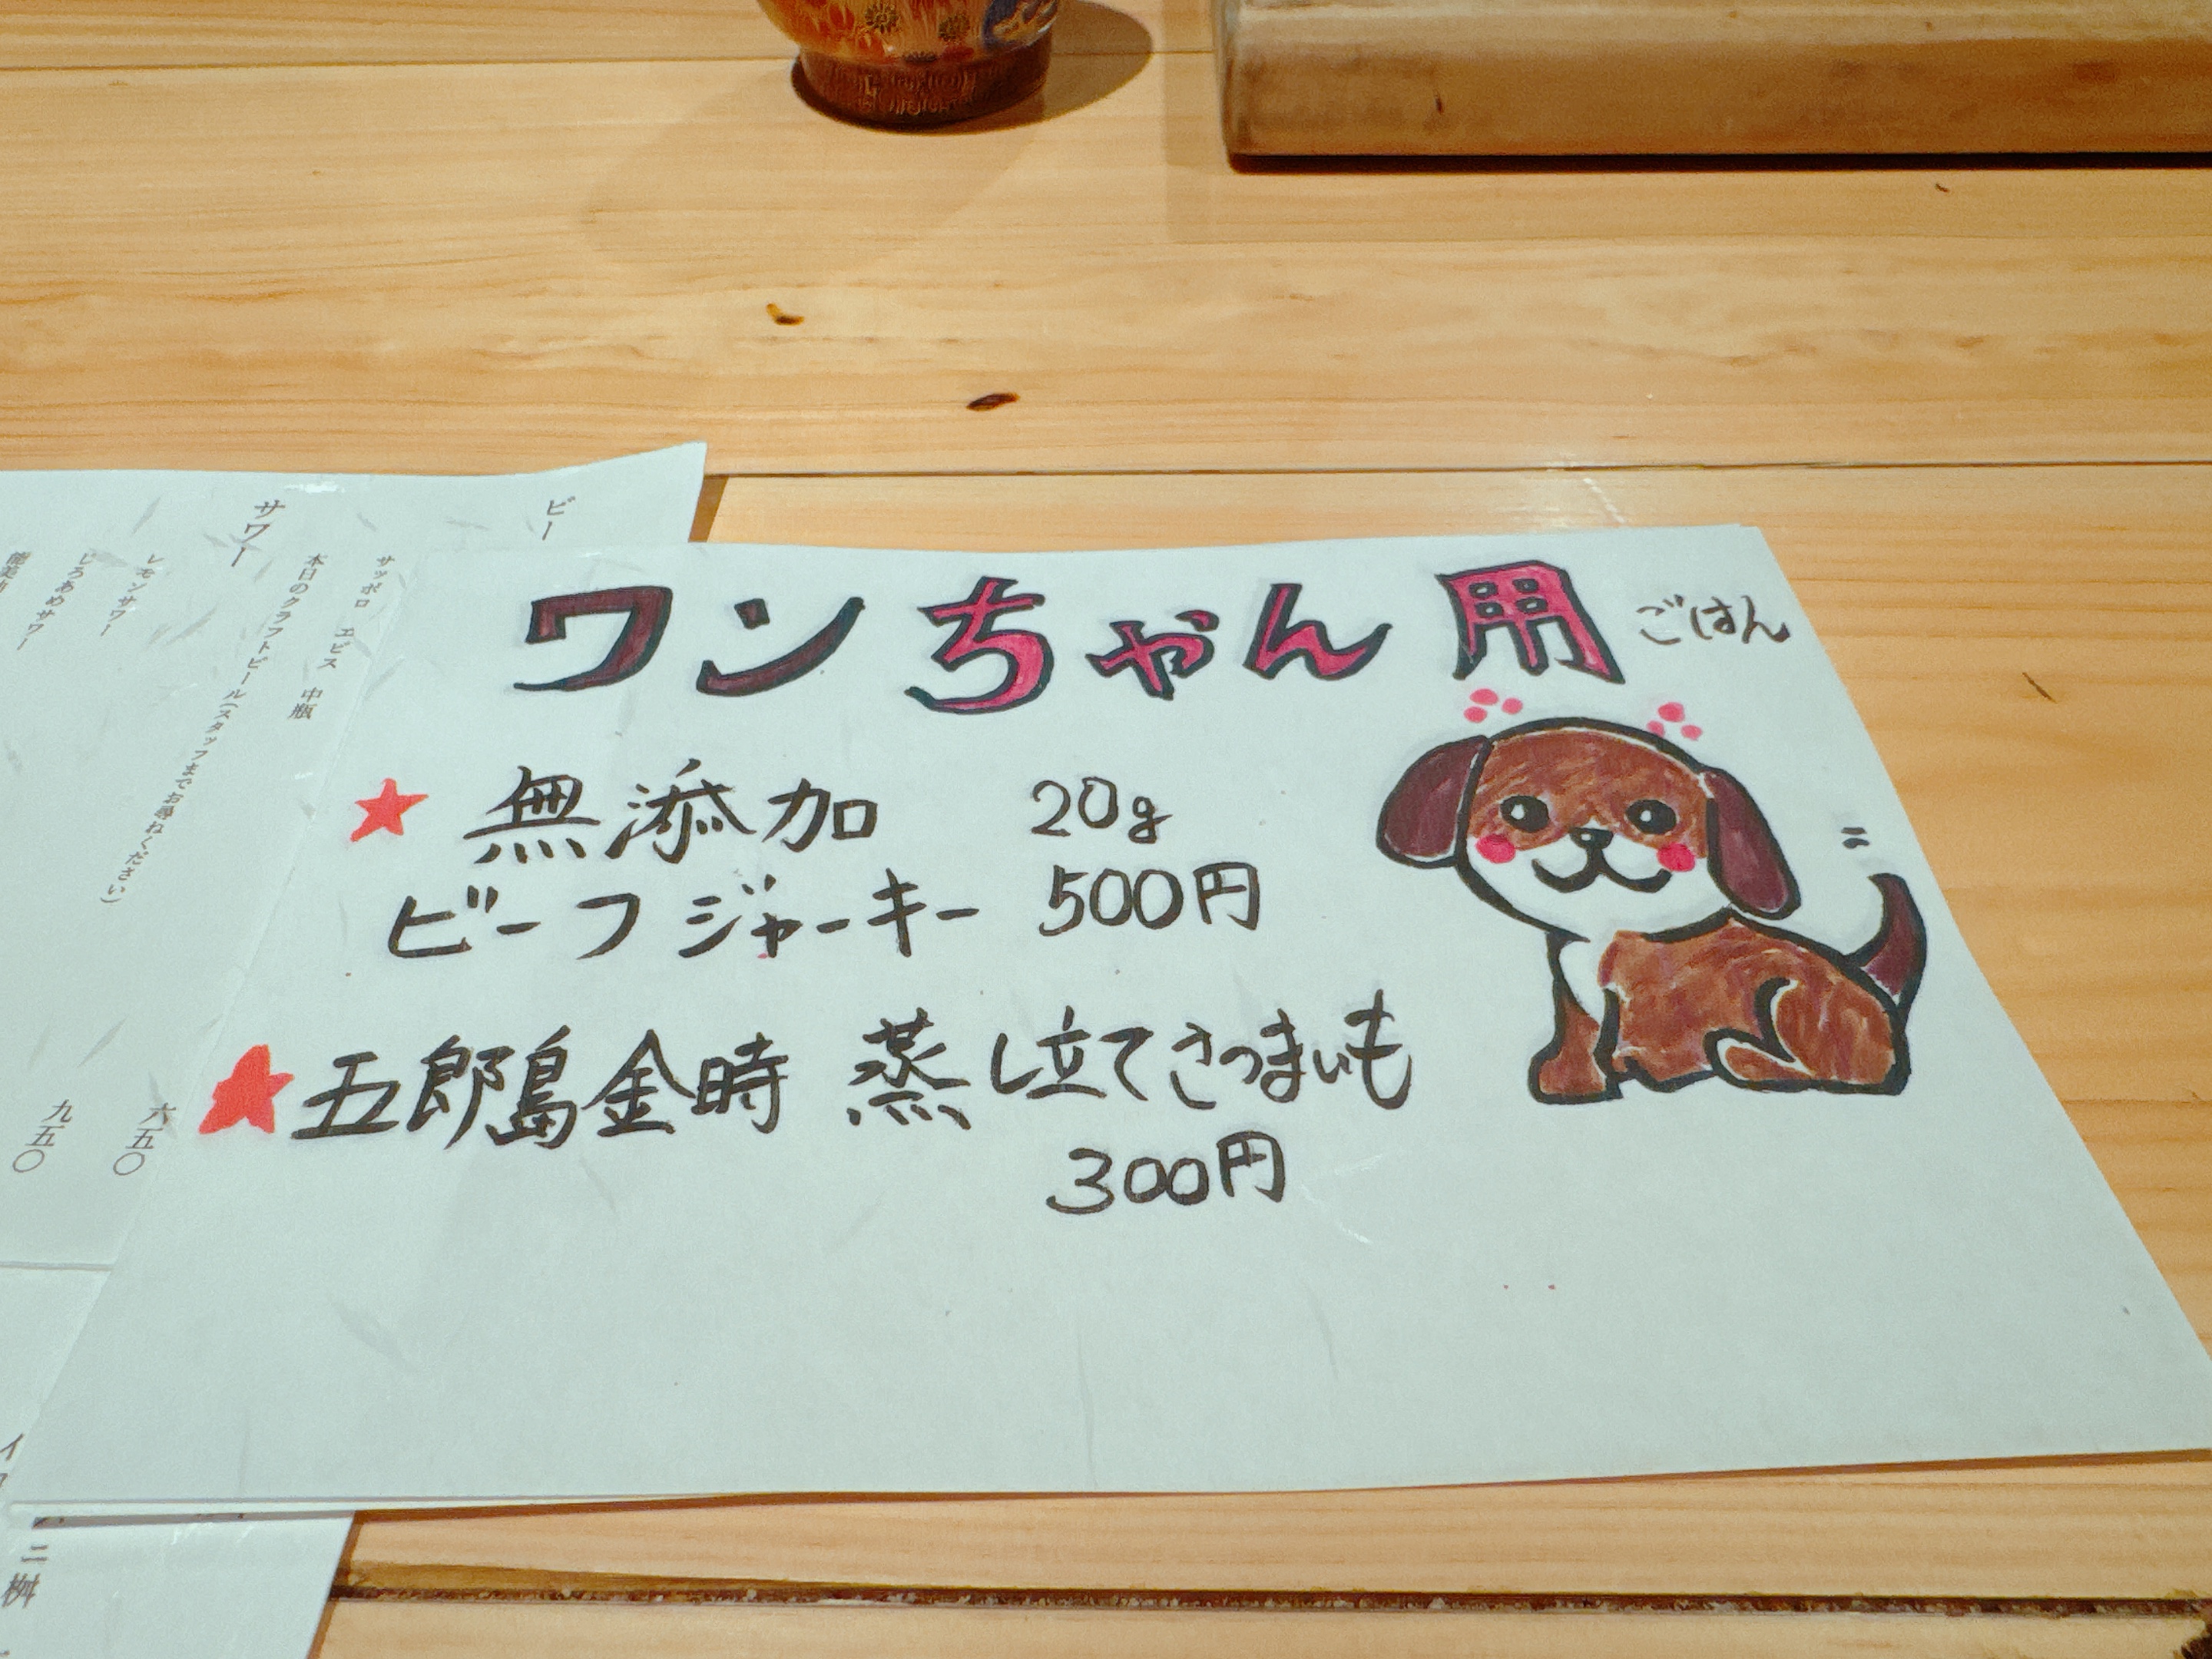 ワンちゃん用ごはん
★無添加 20g
ビーフジャーキー 500円
★五郎島金時 蒸し立てさつまいも
300円
ビー
サッポロ ヱビス 中瓶
本日のクラフトビール(スタッフまでお尋ねください)
サワー
レモンサワー
じろあめサワー
六五〇
九五〇